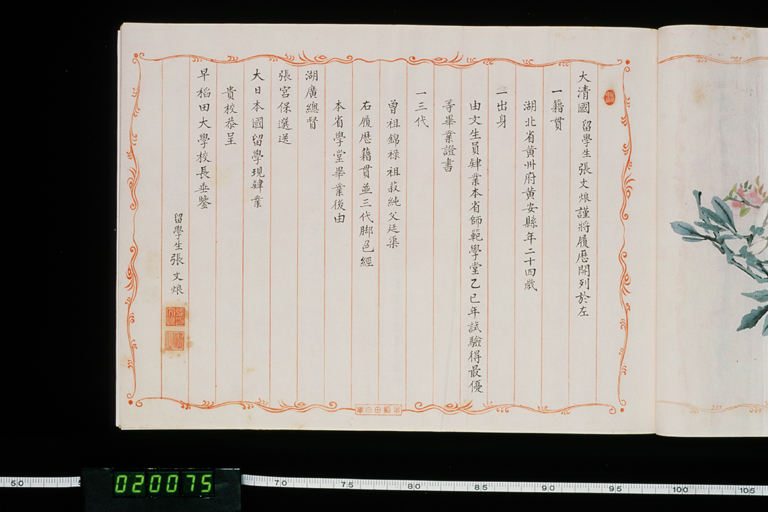 大清國留學生張文烺謹將履歷開列於左
一籍貫
湖北省黃州府黃安縣年二十四歲
一出身
由文生員肄業本省師範學堂乙巳年試驗得最優
等畢業證書
一三代
曾祖錦樑祖菽純父廷渠
右履歷籍貫並三代腳色經
本省學堂畢業後由
湖廣總督
張宮保選送
大日本國留學現肄業
貴校恭呈
早稻田大學校長垂鑒
留學生張文烺
020075
50
70
75
80
85
90
95
100
105